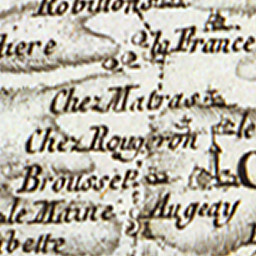 Robillons
la France
liere
Chez Matras
le
Chez Rougeron
LO
Brousset
le Maine
Augeay
bette